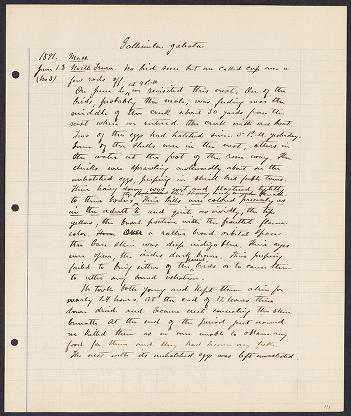 Gallinula galeata
1891. Mass.
June 1-3 North Truro. No bird seen but one called cup over a
(No 3) few rods off, at 4 P.M.
On June 2, we revisited this nest. One of the
birds, probably the male, was feeding near the
middle of the creek about 30 yards from the
nest when we entered the creek with our boat
Two of the eggs had hatched since 5 P.M. yesterday.
Some of the shells were in the nest, others in
the water at the foot of the run-way. The
chicks were sprawling awkwardly about on the
unhatched eggs, peeping in shrill but feeble tones.
Their down was wet and plastered tightly
to their bodies. Their bills were colored precisely as
in the adult & and quite as vividly, the tip
yellow, the basal portion with the frontal flame
color. a rather broad orbital space
the bare skin was deep indigo blue. Their eyes
were open, the irides dark brown. Their peeping
failed to bring either of the parent birds or to cause them
to utter any sound whatever.
We took both young and kept them alive for
nearly 24 hours. At the end of 12 hours their
down dried and became erect concealing the skin
beneath. At the end of the period just named
we killed them as we were unable to obtain any
food for them and they had become very feeble.
The nest with its unhatched eggs was left unmolested.